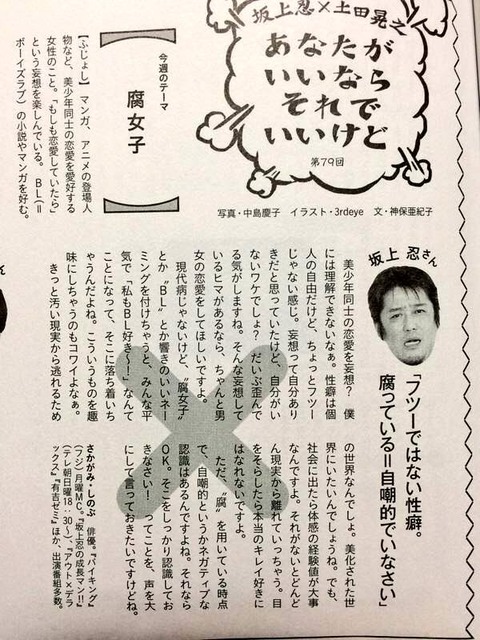 坂上忍×土田晃之
あなたが
いいなら
それで
いいけど
第79回
写真・中島慶子　イラスト・3rdeye　文・神保亜紀子
今週のテーマ
腐女子
【ふじょし】マンガ、アニメの登場人
物など、美少年同士の恋愛を愛好する
女性のこと。「もしも恋愛していたら」
という妄想を楽しんでいる。BL（＝
ボーイズラブ）の小説やマンガを好む。
坂上 忍さん
「フツーではない性癖。
腐っている＝自嘲的でいなさい」
美少年同士の恋愛を妄想？　僕
には理解できないなぁ。性癖は個
人の自由だけど、ちょっとフツー
じゃない感じ。妄想って自分あり
きだと思っていたけど、自分がい
ないワケでしょ？　だいぶ歪んで
る気がしますね。そんな妄想して
いるヒマがあるなら、ちゃんと男
女の恋愛をしてほしいですよ。
現代病じゃないけど、“腐女子”
とか“BL”とか響きのいいネー
ミングを付けちゃうと、みんな平
気で「私もBL好き〜！」なんて
ことになって、そこに落ち着いち
ゃうんだよね。こういうものを趣
味にしちゃうのもコワイよなぁ。
きっと汚い現実から逃れるため
の世界なんでしょ。美化された世
界にいたいんでしょうね。でも、
社会に出たら体感の経験値が大事
なんですよ。それがないとどんど
ん現実から離れていっちゃう。目
をそらしたら本当のキレイ好きに
はなれないですよ。
ただ、“腐”を用いている時点
で、自嘲的というかネガティブな
認識はあるんですよね。それなら
OK。そこをしっかり認識してお
きなさい！　ってことを、声を大
にして言っておきたいですけどね。
さかがみ・しのぶ　俳優。『バイキング』
（フジ）月曜MC。『坂上忍の成長マン!!』
（テレ朝日曜18：30〜）、『アウト×デラ
ックス』『有吉ゼミ』ほか、出演番組多数。